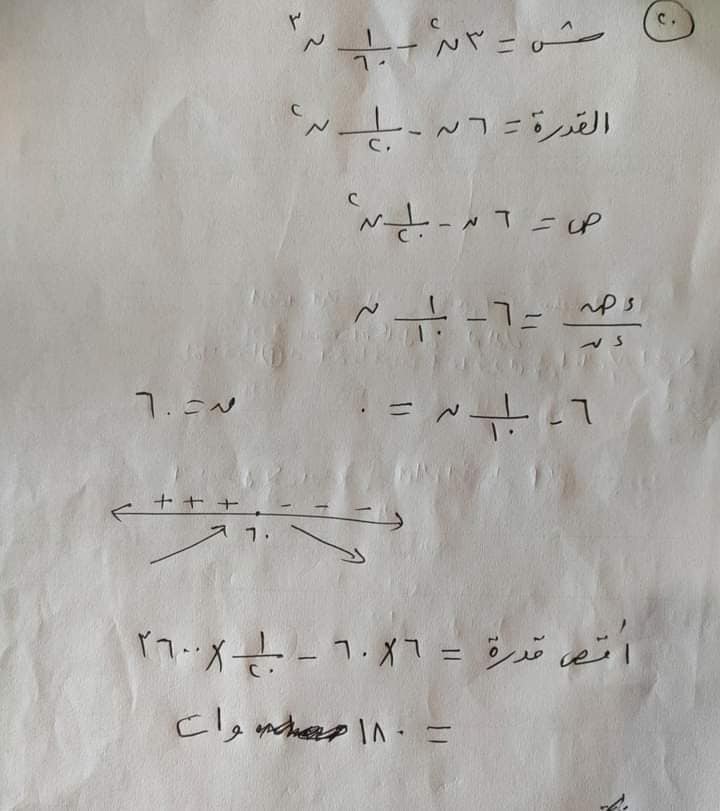 ٢٠
ش = ٣ن² - ١/٦٠ ن³
القدرة = ٦ن - ١/٢٠ ن²
ص = ٦ن - ١/٢٠ ن²
ءص/ءن = ٦ - ١/١٠ ن
٦ - ١/١٠ ن = ٠ ن = ٦٠
+ + + - - -
٦٠
أقصى قدرة = ٦ × ٦٠ - ١/٢٠ × ٣٦٠٠
= ١٨٠ وات